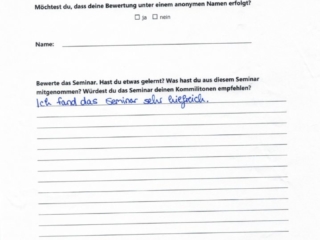 Möchtest du, dass deine Bewertung unter einem anonymen Namen erfolgt?
☐ ja ☐ nein
Name:
Bewerte das Seminar. Hast du etwas gelernt? Was hast du aus diesem Seminar
mitgenommen? Würdest du das Seminar deinen Kommilitonen empfehlen?
Ich fand das Seminar sehr hilfreich.